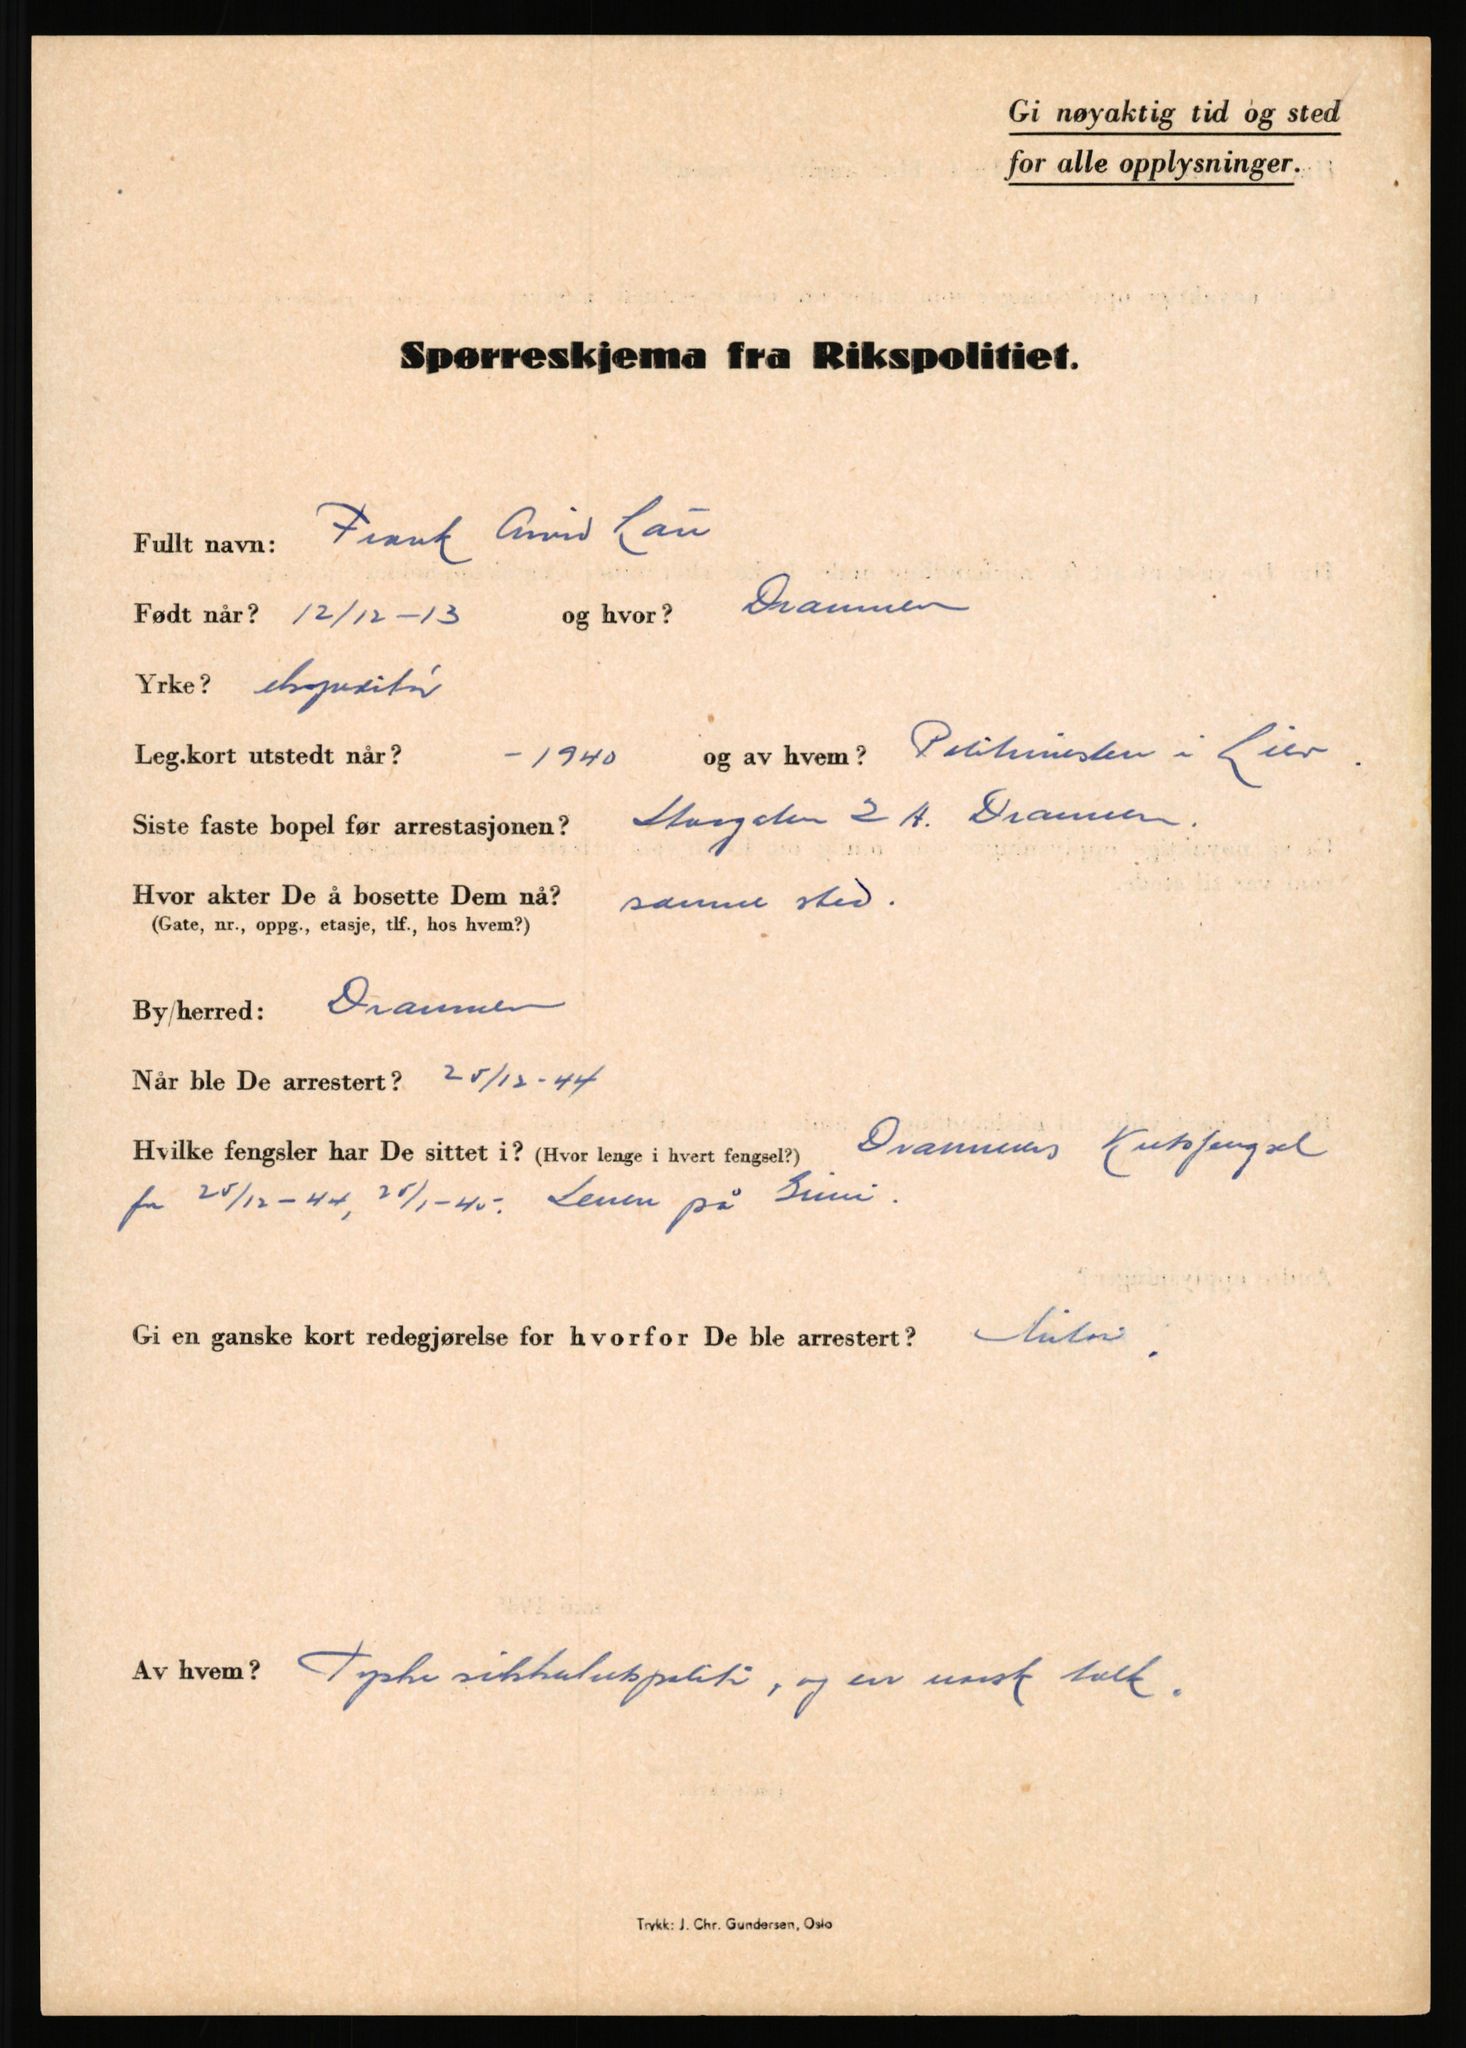 Gi nøyaktig tid og sted
for alle opplysninger.
Spørreskjema fra Rikspolitiet.
Fullt navn: Frank Arvid Lau
Født når? 12/12-13 og hvor? Drammen
Yrke? ekspeditør
Leg.kort utstedt når? -1940 og av hvem? Politimesteren i Lier.
Siste faste bopel før arrestasjonen? Storgaten 2 A. Drammen.
Hvor akter De å bosette Dem nå? samme sted.
(Gate, nr., oppg., etasje, tlf., hos hvem?)
By/herred: Drammen
Når ble De arrestert? 25/12-44
Hvilke fengsler har De sittet i? (Hvor lenge i hvert fengsel?) Drammens Kretsfengsel
fra 25/12-44, 25/1-45. på Grini.
Gi en ganske kort redegjørelse for hvorfor De ble arrestert? Milor.
Av hvem? Tyske sikkerhetspoliti, og en norsk tolk.
Trykk: J. Chr. Gundersen, Oslo